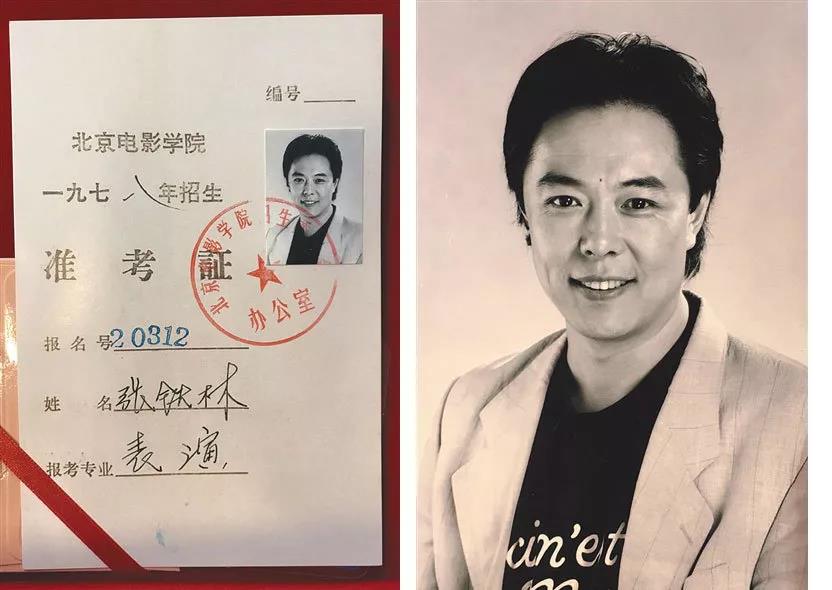 编号
北京电影学院
一九七八年招生
准考証
北京电影学院招生
办公室
报名号20312
姓名张铁林
报考专业表演
cin'est